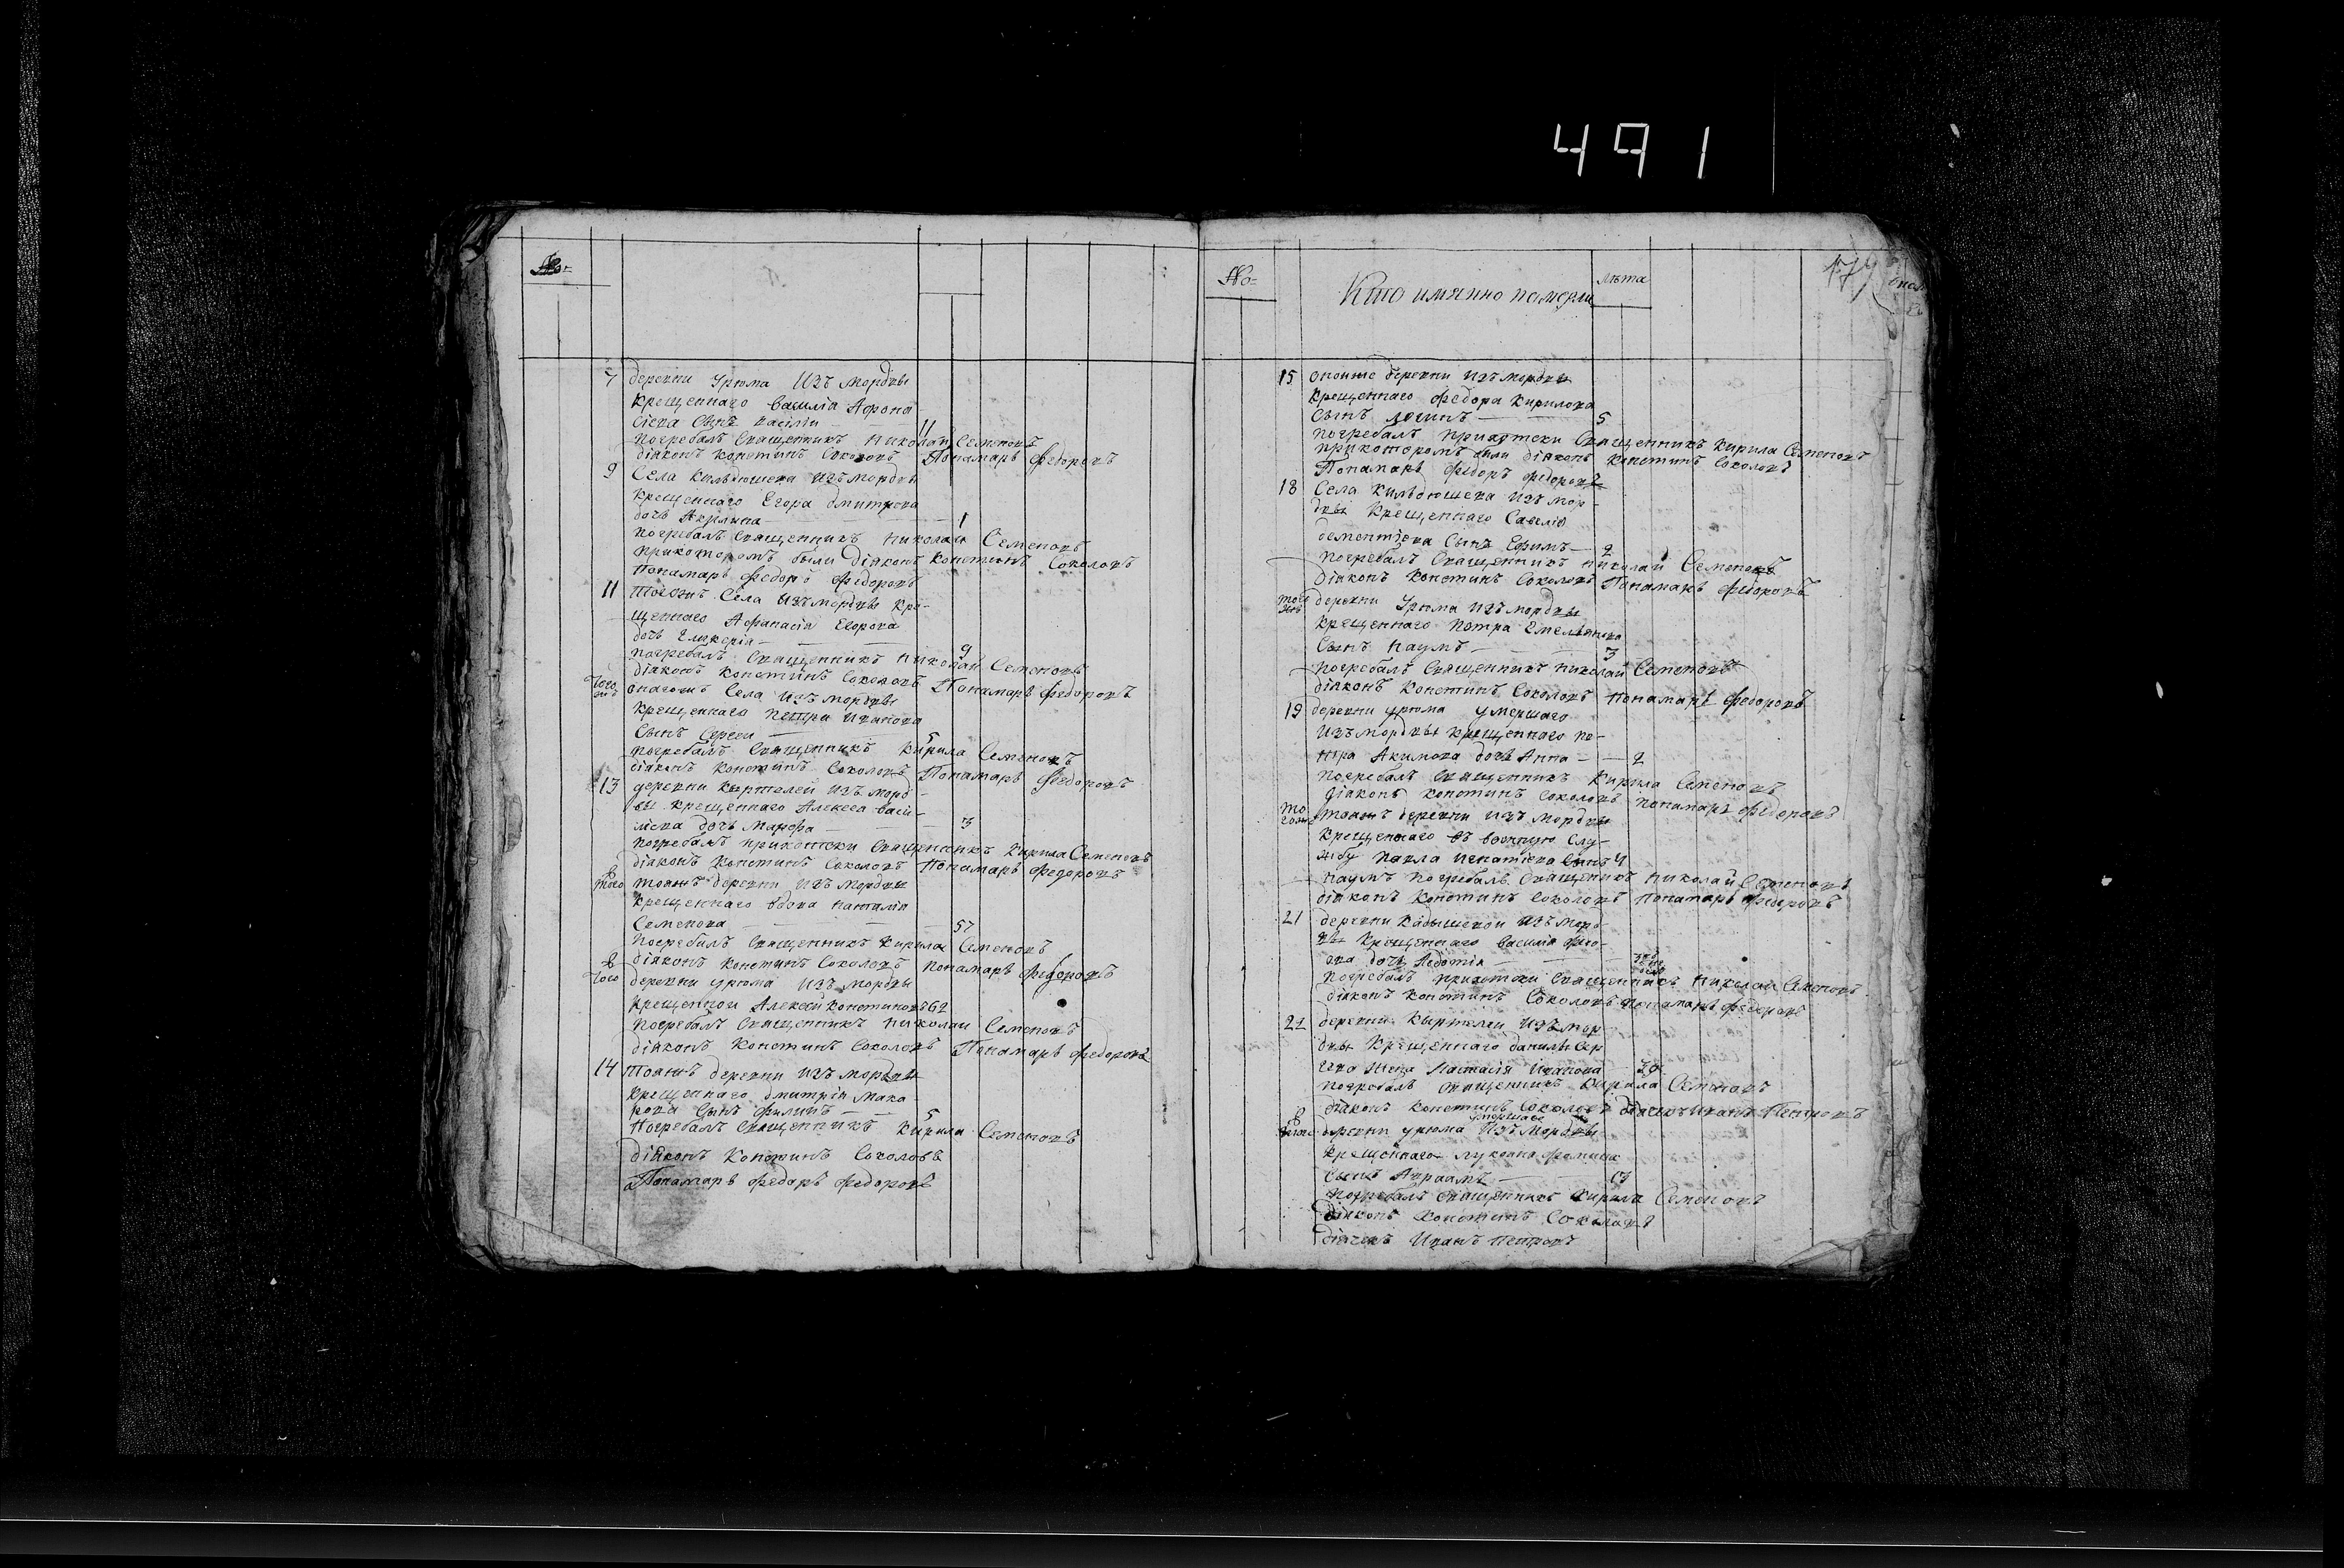 491
№
7 деревни Урюма Изъ мордвы
крещеннаго василiа Афона
сiева Сынъ васiли 11
погребалъ Священникъ николай Семеновъ
дiаконъ констинъ Соколовъ Понамарь федоровъ
9 Села кильдюшева Изъ мордвы
крещеннаго Егора дмитрева
дочь Акулина 1
погребалъ Священникъ николай Семеновъ
прикоторомъ были дiаконъ констинъ Соколовъ
понамарь федоръ федоровъ
11 тогожъ Села Изъ мордвы кре-
щеннаго Афанасiа Егорова
дочь Гликерiа 9
погребалъ Священникъ николай Семеновъ
дiаконъ констинъ Соколовъ Понамарь федоровъ
того онагожъ Села Изъ мордвы
крещеннаго петра иванова
Сынъ Сергеи 5
погребалъ Священникъ кирила Семеновъ
дiаконъ констинъ Соколовъ Понамарь федоровъ
13 деревни кыртелей Изъ морд
вы крещеннаго Алексеа васи-
лiева дочь марфа 3
погребалъ приходски Священникъ кирила Семеновъ
дiаконъ констинъ Соколовъ Понамарь федоровъ
в того тояжъ деревни Изъ мордвы
крещеннаго вдова наталiа
Семенова 57
погребалъ Священникъ кирила Семеновъ
дiаконъ констинъ Соколовъ понамарь федоровъ
в того деревни урюма Изъ мордвы
крещенной Алексей констиновъ 62
погребалъ Священникъ николаи Семеновъ
дiаконъ констинъ Соколовъ Понамарь федоровъ
14 тояжъ деревни Изъ мордвы
крещеннаго дмитрiи мака
рова Сынъ филипъ 5
погребалъ Священникъ кирила Семеновъ
дiаконъ констинъ Соколовъ
Понамарь федоръ федоровъ
174
№ Кто имянно померли лѣта
15 оноиже деревни Изъ мордвы
крещеннаго федора кирилова
Сынъ логинъ 5
погребалъ приходски Священникъ кирила Семеновъ
прикоторомъ были дiаконъ констинъ Соколовъ
Понамарь федоръ федоровъ
18 Села кильдюшева Изъ мор-
двы крещеннаго Савелiа
дементiева Сынъ Ефимъ 2
погребалъ Священникъ николай Семеновъ
дiаконъ констинъ Соколовъ Понамарь федоровъ
деревни Урюма Изъ мордвы
крещеннаго петра Емельянова
Сынъ наумъ 3
погребалъ Священникъ николай Семеновъ
дiаконъ констинъ Соколовъ понамарь федоровъ
19 деревни урюма умершаго
Изъ мордвы крещеннаго пе-
тра Акимова дочь Анна 2
погребалъ Священникъ кирила Семеновъ
дiаконъ констинъ Соколовъ понамарь федоровъ
тояжъ деревни Изъ мордвы
крещеннаго въ военную слу-
жбу павла игнатiева Сынъ 4
наумъ погребалъ Священникъ николай Семеновъ
дiаконъ констинъ Соколовъ понамарь федоровъ
21 деревни кадышевой Изъ морд
вы крещеннаго василiа
дочь Авдотiа
погребалъ приходски Священникъ николай Семеновъ
дiаконъ констинъ Соколовъ понамарь федоровъ
деревни кыртелей Изъ мор
двы крещеннаго данилы
жена настасiа иванова
погребалъ священникъ кирила Семеновъ
дiаконъ констинъ Соколовъ дiячекъ иванъ Петровъ
умершаго
деревни урюма Изъ мордвы
крещеннаго лукоана фомина
Сынъ Авраамъ
погребалъ священникъ кирила Семеновъ
дiаконъ констинъ Соколовъ
дiячекъ Иванъ петровъ